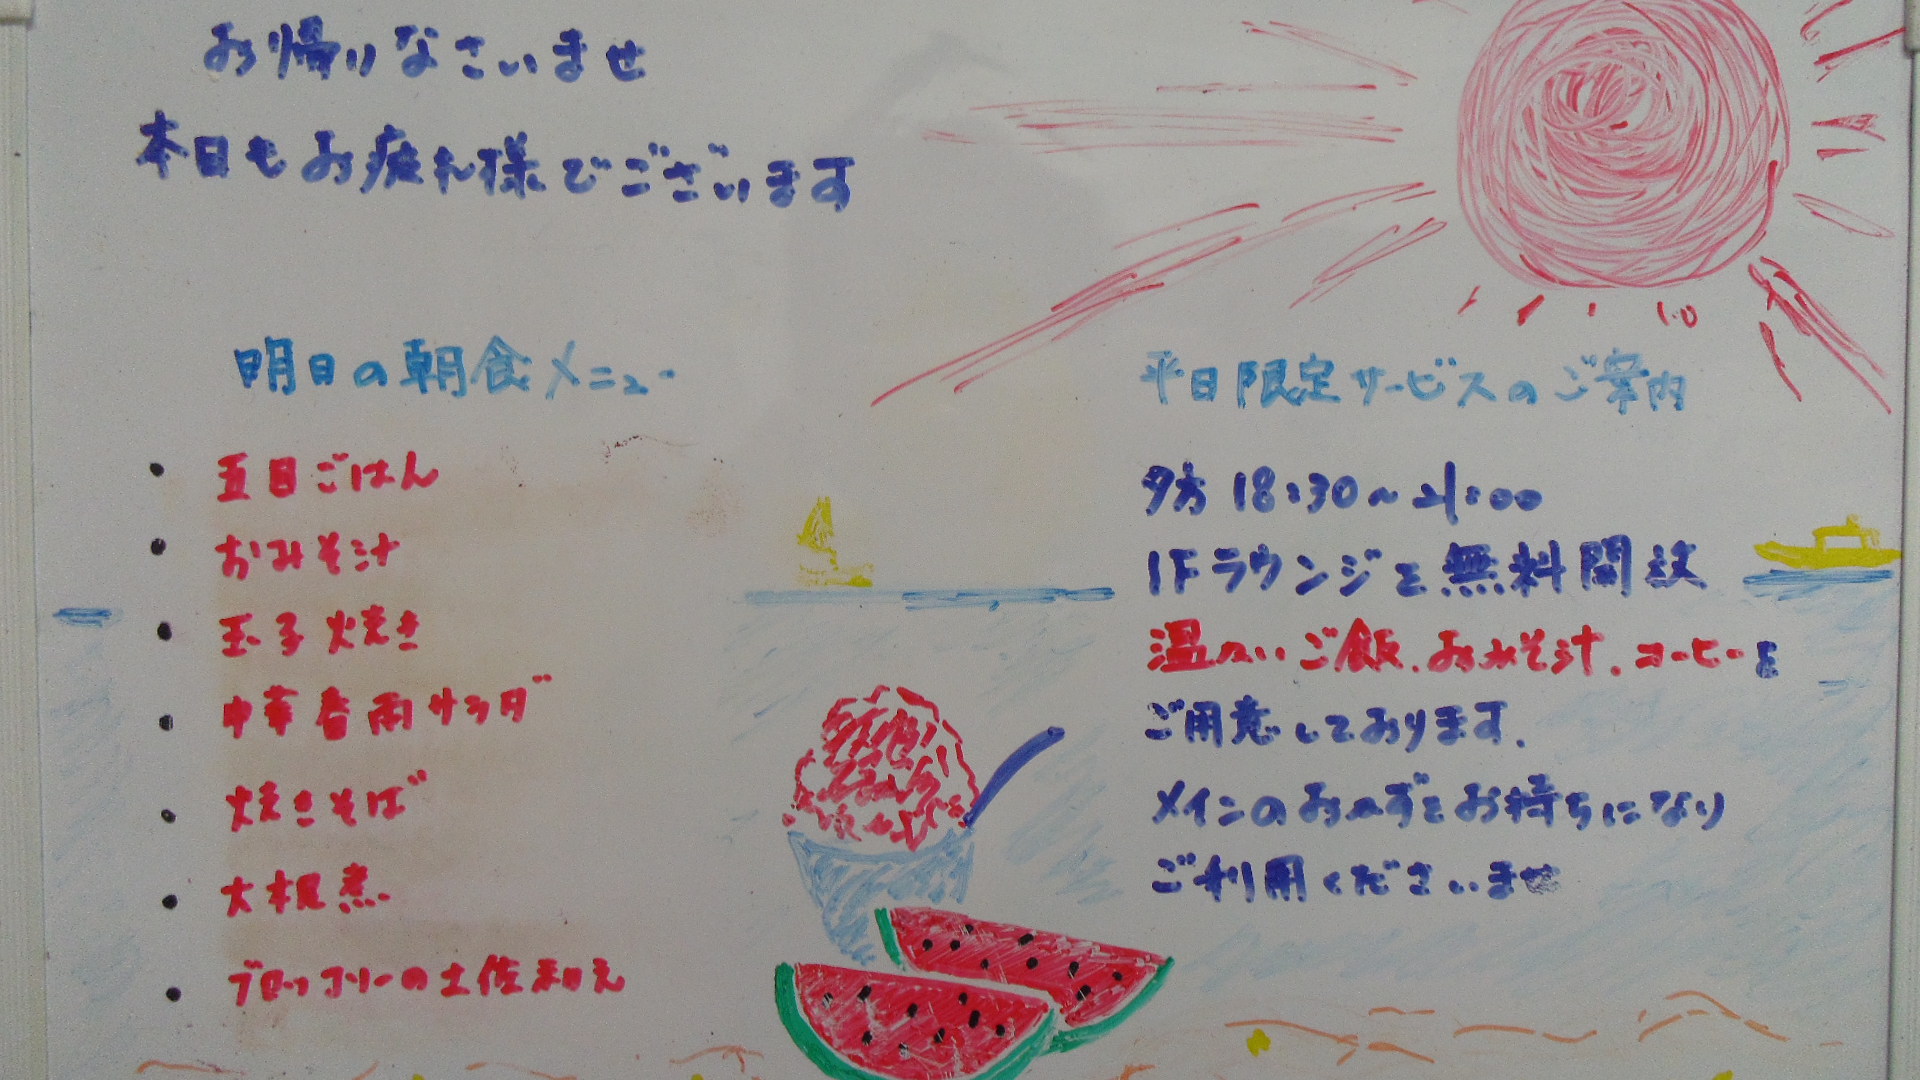 お帰りなさいませ
本日もお疲れ様でございます
明日の朝食メニュー
・五目ごはん
・おみそ汁
・玉子焼き
・中華春雨サラダ
・焼きそば
・大根煮
・ブロッコリーの土佐和え
平日限定サービスのご案内
夕方 18:30～21:00
1Fラウンジを無料開放
温かいご飯、おみそ汁、コーヒーを
ご用意しております。
メインのおかずをお持ちになり
ご利用くださいませ